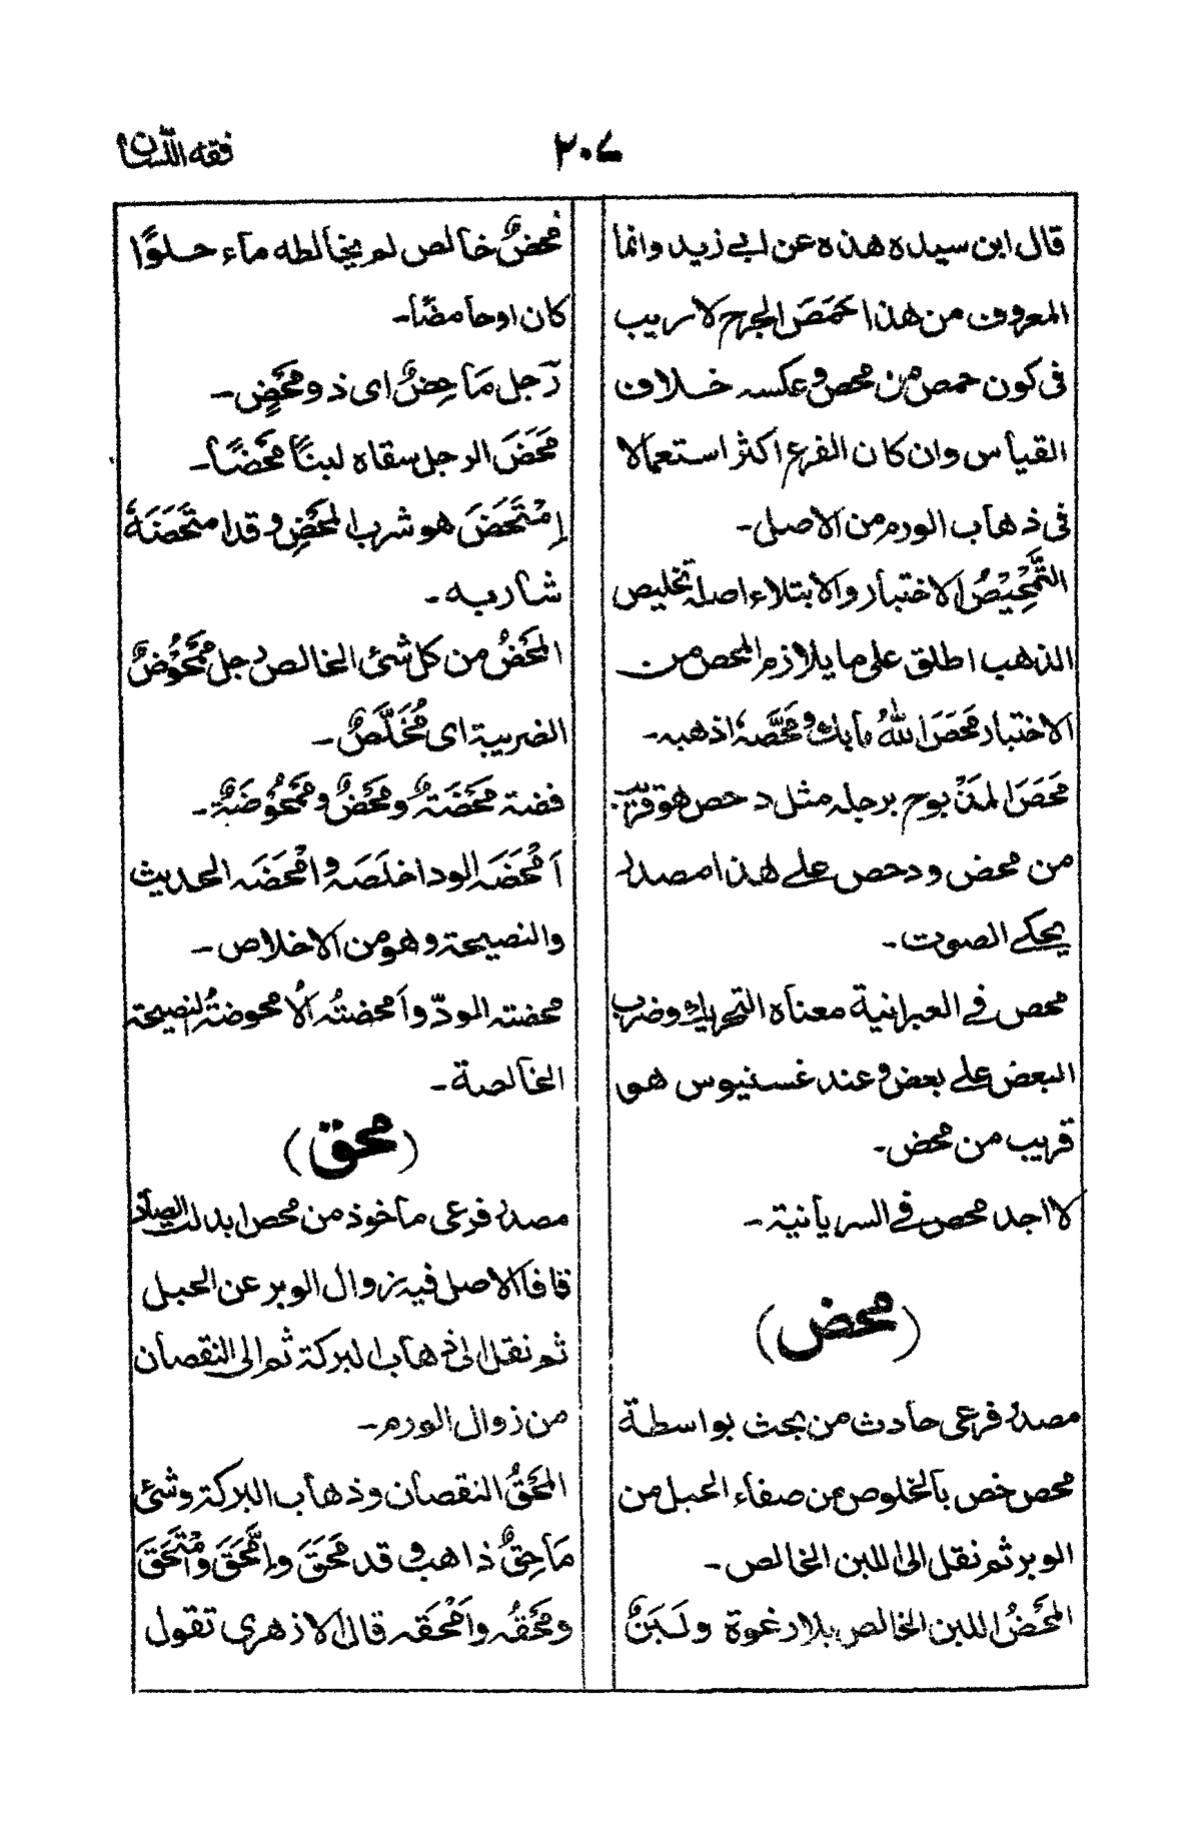 فقه اللسان
٢٠٧
قال ابن سيده هذه عن ابي زيد وانما
المعروف من هذا حَمَصَ الجرح لاريب
فى كون حمص من محص وعكسه خلاف
القياس وان كان الفرع اكثر استعمالا
فى ذهاب الورم من الاصل-
التَّمْحِيْصُ الاختبار والابتلاء اصله تخليص
الذهب اطلق على ما يلازم المحص من
الاختبار مَحَصَ اللهُ مابك ومَحَّصَهٗ اذهبه-
مَحَصَ المذْبوح برجله مثل دحص هو قريب
من محض ودحص على هذا مصدر
يحكى الصوت-
محص فى العبرانية معناه التحريك وضرب
البعض على بعض وعند غسنيوس هو
قريب من محض-
لااجد محص فى السريانية-
(محض)
مصدر فرعى حادث من بحث بواسطة
محص خص بالخلوص من صفاء الحبل من
الوبر ثم نقل الى اللبن الخالص-
المَحْضُ اللبن الخالص بلا رغوة ولَبَنٌ
مَحْضٌ خالص لم يخالطه ماء حلوًا
كان اوحامضًا-
رَجل مَاحِضٌ اى ذو مَحْضٍ-
مَحَضَ الرجل سقاه لبنًا مَحْضًا-
اِمْتَحَضَ هو شرب المَحْضِ وقد امتَحَضَهٗ
شاربه-
المَحْضُ من كل شئ الخالص رجل مَمْحُوْضٌ
الضريبة اى مُخَلَّصٌ-
فضة مَحْضَةٌ ومَحْضٌ ومَمْحُوْضَةٌ-
اَمْحَضَه الود اخلَصَه وامْحَضَه الحديث
والنصيحة وهو من الاخلاص-
محضته الودّ واَمحضتُه الُامحوضةُ النصيحة
الخالصة-
(محق)
مصدر فرعى ماخوذ من محص ابدلت الصاد
قافا الاصل فيه زوال الوبر عن الحبل
ثم نقل الى ذهاب البركة ثم الى النقصان
من زوال الورم-
المَحْقُ النقصان وذهاب البركة وشئ
مَاحِقٌ ذاهب وقد مَحَقَ وامَّحَقَ وامْتَحَقَ
ومَحَقُه واَمْحَقَه قال الازهرى تقول